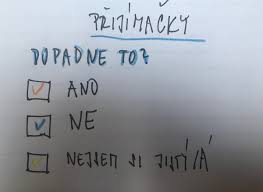 PŘIJÍMAČKY
DOPADNE TO?
ANO
NE
NEJSEM SI JISTÝ/Á